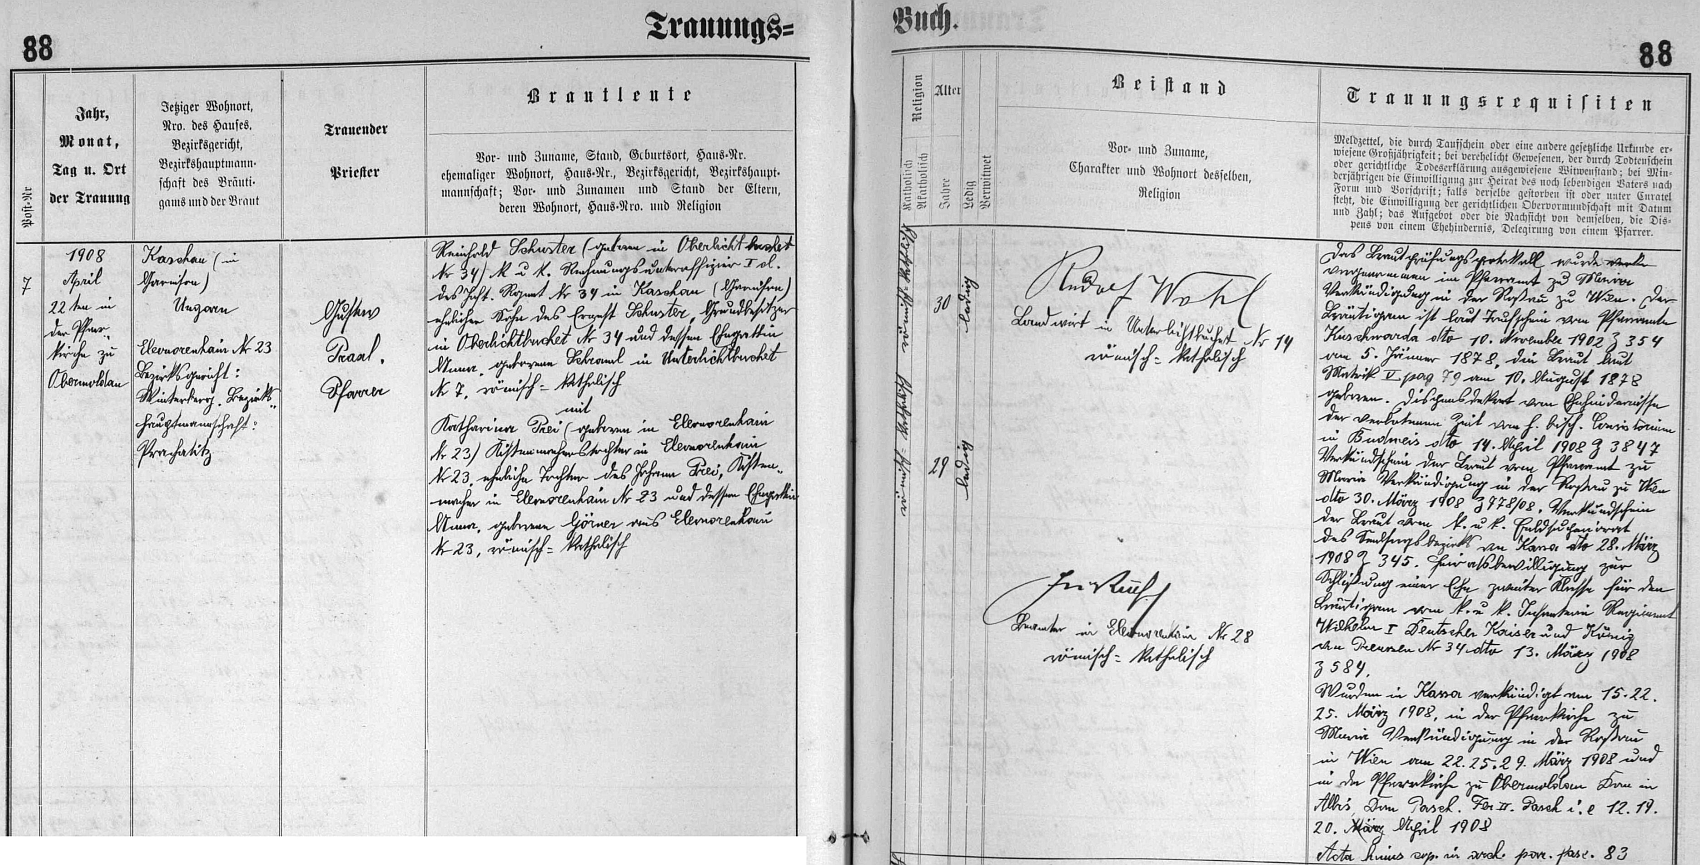 88
Trauungs=
Post-Nr
Jahr,
Monat,
Tag u. Ort
der Trauung
Jetziger Wohnort,
Nro. des Hauses,
Bezirksgericht,
Bezirkshauptmann-
schaft des Bräuti-
gams und der Braut
Trauender
Priester
Brautleute
Vor- und Zuname, Stand, Geburtsort, Haus-Nr.
ehemaliger Wohnort, Haus-Nr., Bezirksgericht, Bezirkshaupt-
mannschaft; Vor- und Zunamen und Stand der Eltern,
deren Wohnort, Haus-Nro. und Religion
7
1908
April
22ten in
der Pfarr-
kirche zu
Obermoldau
Kaschau (in
Garnison)
Ungarn
Eleonorenhain Nr 23
Bezirksgericht:
Winterberg. Bezirks-
hauptmannschaft:
Prachatitz
Gustav
Praal.
Pfarrer
Reinhold Schuster (geboren in Oberlichtbuchet
Nr 34) k. u. k. Rechnungsunteroffizier I Cl.
des Inft. Regmt Nr 34 in Kaschau (Garnison)
ehelicher Sohn des Ernest Schuster, Grundbesitzer
in Oberlichtbuchet Nr 34 und dessen Ehegattin
Anna, geborene Schraml in Unterlichtbuchet
Nr 7, römisch=katholisch
mit
Katharina Frei (geboren in Eleonorenhain
Nr 23) Kistenmacherstochter in Eleonorenhain
Nr 23, eheliche Tochter des Johann Frei, Kisten-
macher in Eleonorenhain Nr 23 und dessen Ehegattin
Anna, geborene Görner aus Eleonorenhain
Nr 23, römisch=katholisch
Buch.
88
Religion
Katholisch
Akatholisch
Alter
Jahre
Ledig
Verwitwet
Beistand
Vor- und Zuname,
Charakter und Wohnort desselben,
Religion
Trauungsrequisiten
Meldzettel, die durch Taufschein oder eine andere gesetzliche Urkunde er-
wiesene Großjährigkeit; bei verehelicht Gewesenen, der durch Todtenschein
oder gerichtliche Todeserklärung ausgewiesene Witwenstand; bei Min-
derjährigen die Einwilligung zur Heirat des noch lebendigen Vaters nach
Form und Vorschrift; falls derselbe gestorben ist oder unter Curatel
steht, die Einwilligung der gerichtlichen Obervormundschaft mit Datum
und Zahl; das Aufgebot oder die Nachsicht von demselben, die Dis-
pens von einem Ehehindernis, Delegirung von einem Pfarrer.
römisch=katholisch
römisch=katholisch
30
ledig
29
ledig
Rudolf Wohl
Landwirt in Unterlichtbuchet Nr 14
römisch=katholisch
Beamter in Eleonorenhain Nr 28
römisch=katholisch
Das Brautprüfungsprotokoll wurde
vorgenommen im Pfarramt zu Maria
Verkündigung in der Rossau zu Wien. Der
Bräutigam ist laut Taufschein vom Pfarramte
Kuschwarda dto 10. November 1902 Z 354
am 5. Jänner 1878, die Braut laut
Matrik V pag 79 am 10. August 1878
geboren. Dispensdekret vom Ehehindernisse
der verbotenen Zeit vom h. bisch. Consistorium
in Budweis dto 14. April 1908 Z 3847
Verkündschein der Braut vom Pfarramt zu
Maria Verkündigung in der Rossau zu Wien
dto 30. März 1908 Z 978/08. Verkündschein
der Braut vom k. u. k. Feldsuperiorat
des Seelsorgsbezirks in Kassa dto 28. März
1908 Z 345. Heiratsbewilligung zur
Schließung einer Ehe zweiter Klasse für den
Bräutigam vom k. u. k. Infanterie Regiment
Wilhelm I Deutscher Kaiser und König
von Preussen Nr 34 dto 13. März 1908
Z 584.
Wurden in Kassa verkündigt am 15. 22.
25. März 1908, in der Pfarrkirche zu
Maria Verkündigung in der Rossau
in Wien am 22. 25. 29. März 1908 und
in der Pfarrkirche zu Obermoldau Dom in
Albis Dom Pasch. Fer II. Pasch i. e 12. 19.
20. März April 1908
Acta huius cop. in arch. par. fasc. 83